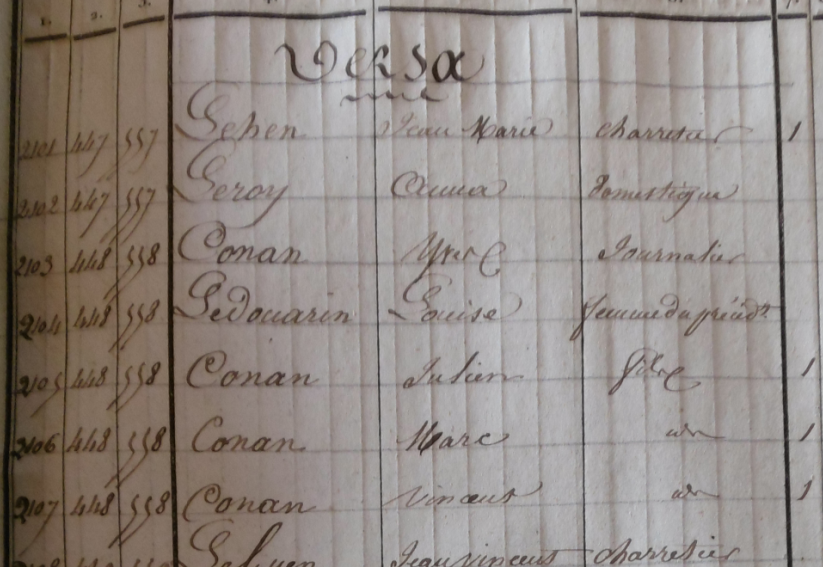 1. 2. 3.
Versa
2101 447 557 Lehen Jean Marie charretier 1
2102 447 557 Leroy Anna domestique
2103 448 558 Conan Yves Journalier
2104 448 558 Ledouarin Louise femme du précédt
2105 448 558 Conan Julien fils 1
2106 448 558 Conan Marc idm 1
2107 448 558 Conan Vincent idm 1
Jean Vincent charretier